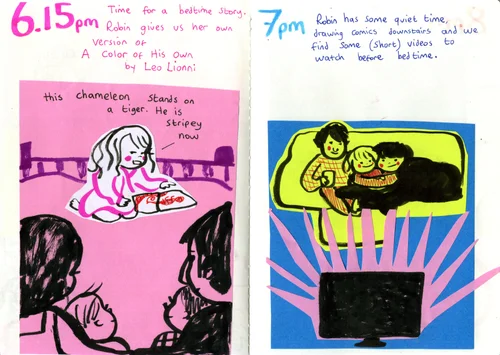 6.15pm
Time for a bedtime story.
Robin gives us her own
version of
A Color of His Own
by Leo Lionni
this chameleon stands on
a tiger. He is
stripey
now
7pm
Robin has some quiet time,
drawing comics downstairs and we
find some (short) videos to
watch before bedtime.